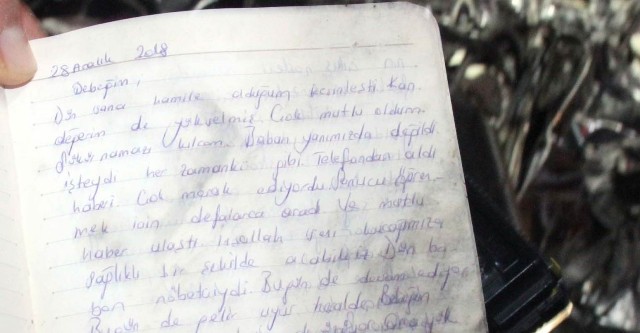 28 Aralık 2018
Bebeğim,
Dün sana hamile olduğum kesinleşti. Kan
değerim de yükselmiş. Çok mutlu oldum.
Şükür namazı kılcam. Baban yanımızda değildi
işteydi her zamanki gibi. Telefondan aldı
haberi. Çok merak ediyordu. Sonucu öğren-
mek için defalarca aradı. Ve mutlu
haber ulaştı. İnşallah seni kucağımıza
sağlıklı bir şekilde alabiliriz. Dün ba-
ban nöbetçiydi. Bugün de
Bugün de gelir uyur heralde. Bebeğim